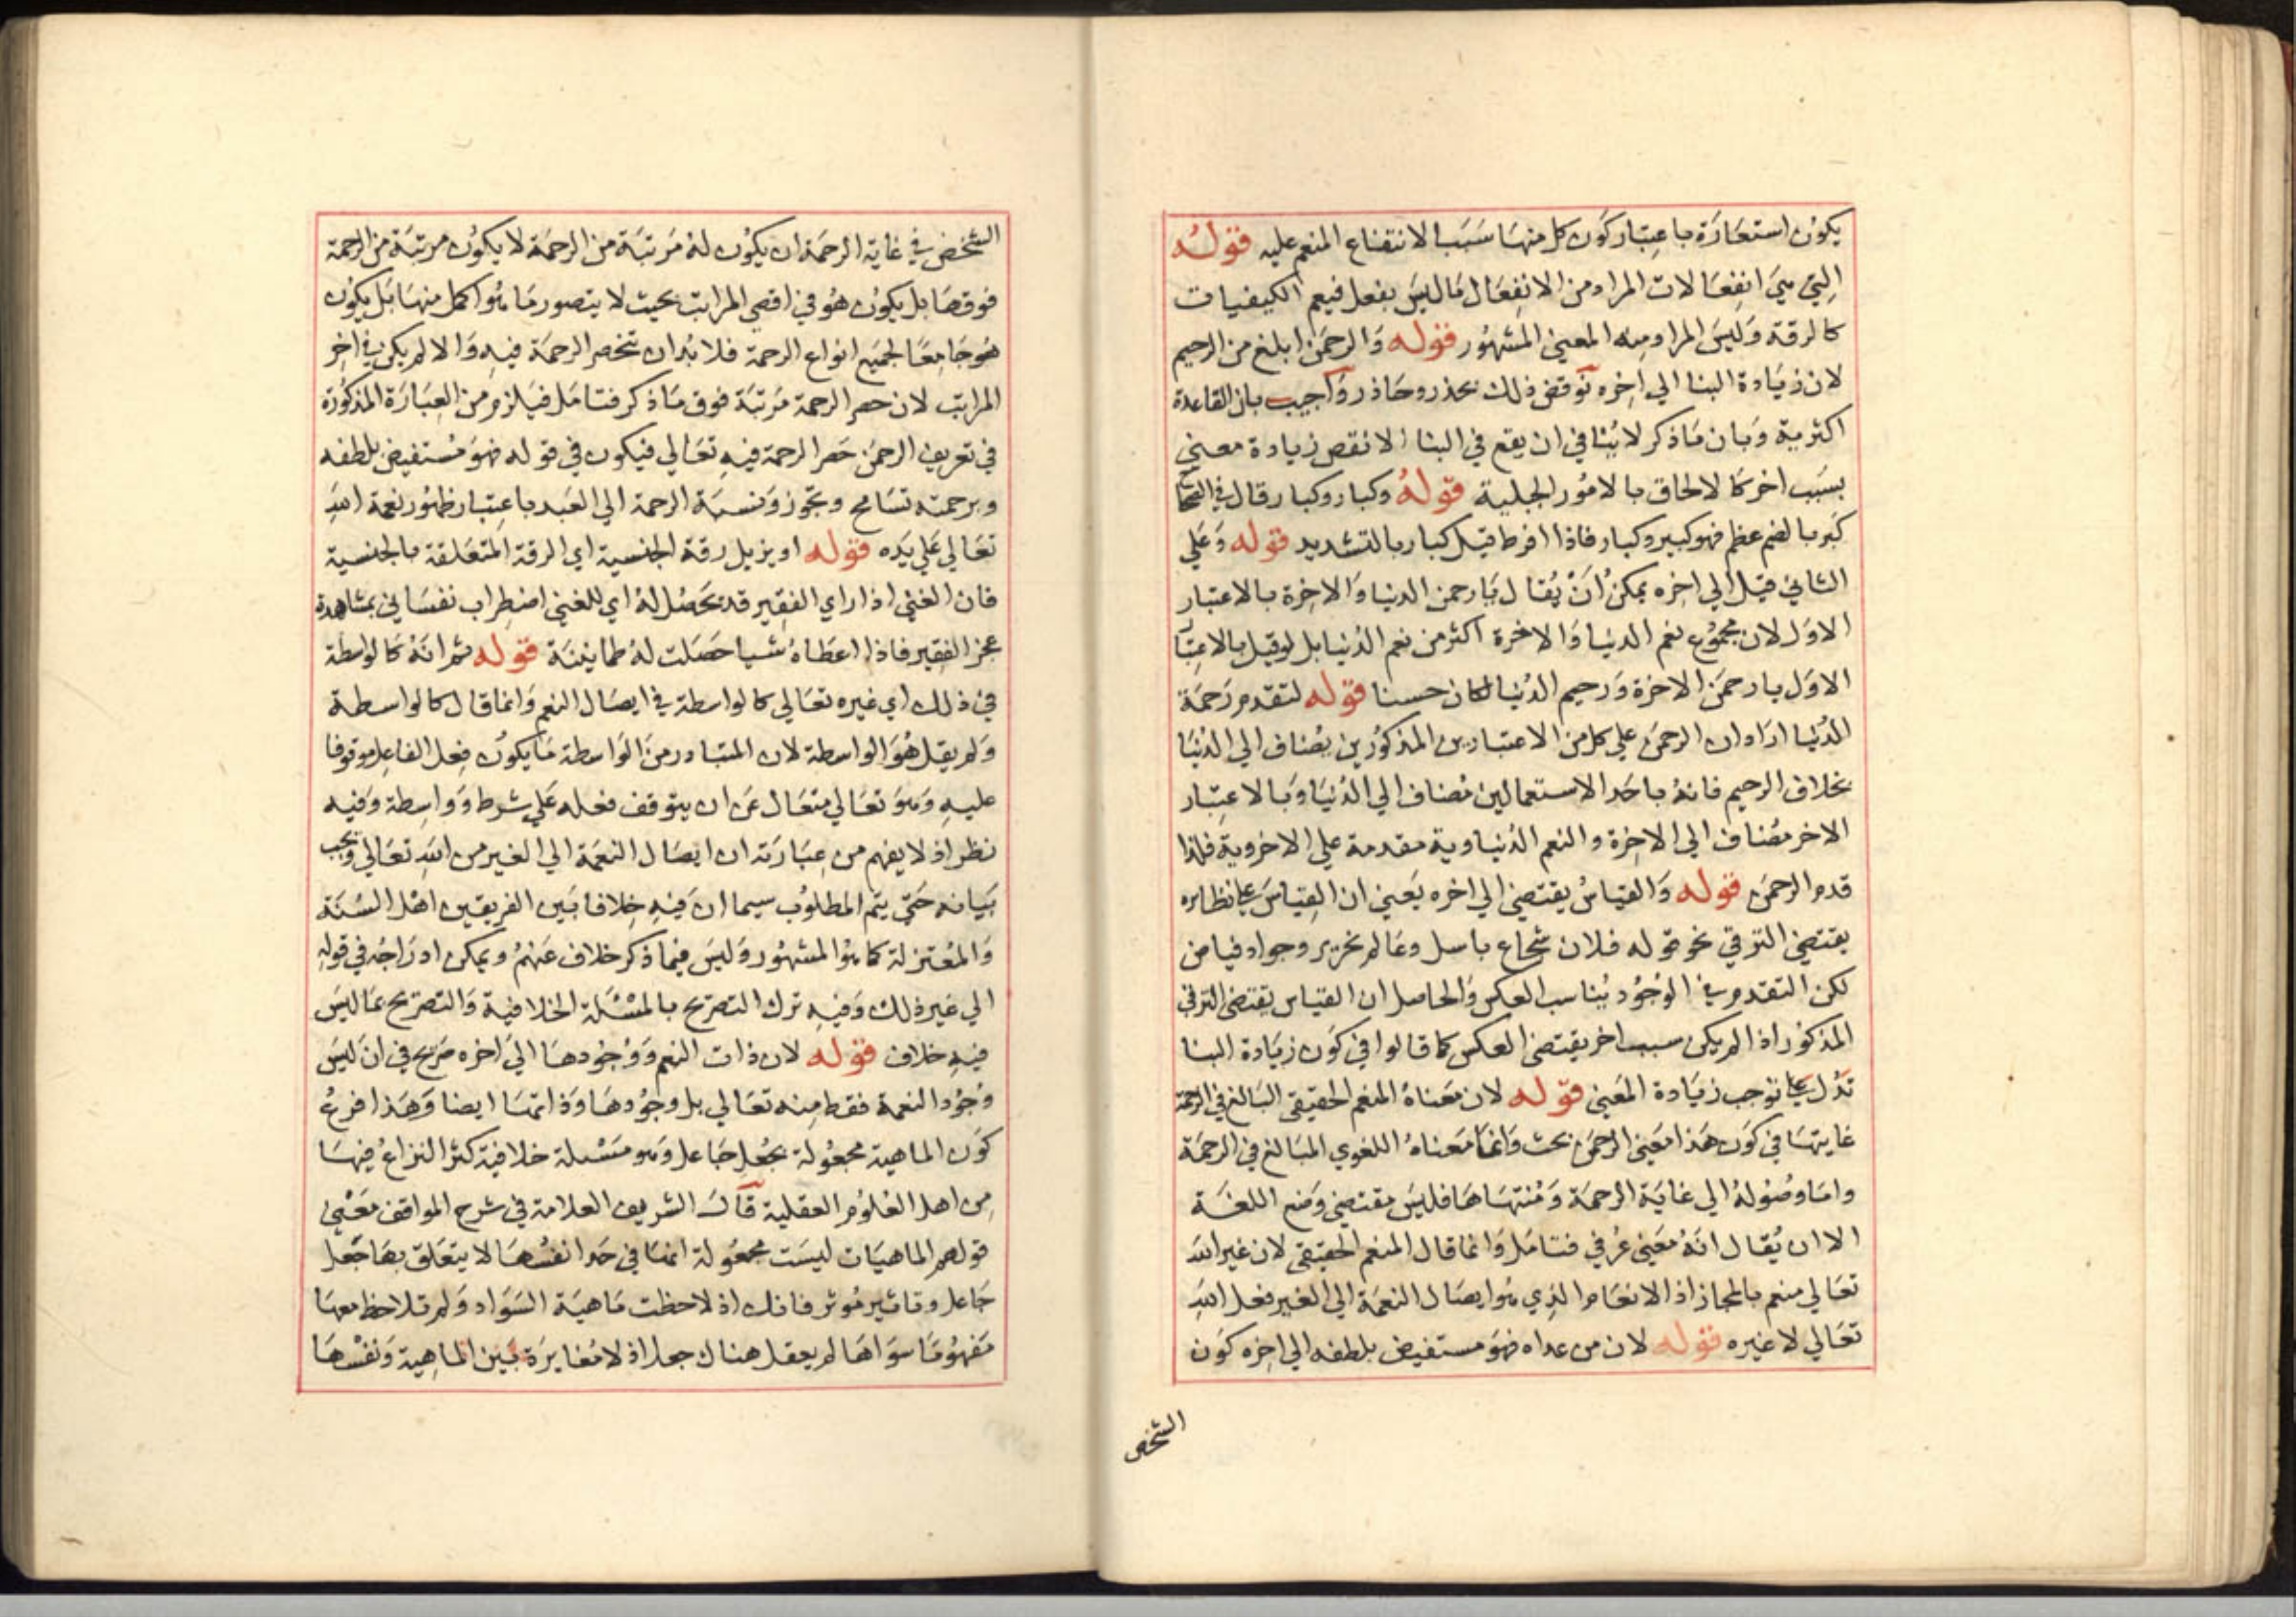 يكون استعارة باعتبار كون كل منها سببا لانتفاع المنعم عليه قوله
التي هي انفعالات المراد من الانفعال ما ليس بفعل فيعم الكيفيات
كالرقة وليس المراد منه المعني المشهور قوله والرحمن ابلغ من الرحيم
لان زيادة البنا الي اخره نوقض ذلك بحذر وحاذر واجيب بان القاعدة
اكثرية وبان ما ذكر لا ينافي ان يقع في البنا الانقص زيادة معني
بسبب اخر كالالحاق بالامور الجبلية قوله وكبار وكبار قال في الصحاح
كبر بالضم عظم فهو كبير وكبار فاذا افرط قيل كبار بالتشديد قوله وعلي
الثاني قيل الي اخره يمكن ان يقال يا رحمن الدنيا والاخرة بالاعتبار
الاول لان مجموع نعم الدنيا والاخرة اكثر من نعم الدنيا بل لو قيل بالاعتبار
الاول يا رحمن الاخرة ورحيم الدنيا لكان حسنا قوله لتقدم رحمة
الدنيا اراد ان الرحمن علي كل من الاعتبارين المذكورين يضاف الي الدنيا
بخلاف الرحيم فانه باحد الاستعمالين مضاف الي الدنيا وبالاعتبار
الاخر مضاف الي الاخرة والنعم الدنياوية مقدمة علي الاخروية فلذا
قدم الرحمن قوله والقياس يقتضي الي اخره يعني ان القياس علي نظائره
يقتضي الترقي نحو قوله فلان شجاع باسل وعالم نحرير وجواد فياض
لكن التقدم في الوجود يناسب العكس والحاصل ان القياس يقتضي الترقي
المذكور اذا لم يكن سبب اخر يقتضي العكس كما قالوا في كون زيادة البنا
تدل علي توجب زيادة المعني قوله لان معناه المنعم الحقيقي البالغ في الرحمة
غايتها في كون هذا معني الرحمن بحث وانما معناه اللغوي المبالغ في الرحمة
واما وصوله الي غاية الرحمة ومنتهاها فليس مقتضي وضع اللغة
الا ان يقال انه معني عرفي فتامل وانما قال المنعم الحقيقي لان غير الله
تعالي منعم بالمجاز اذ الانعام الذي هو ايصال النعمة الي الغير فعل الله
تعالي لا غيره قوله لان من عداه فهو مستفيض بلطفه الي اخره كون
الشخص
الشخص في غاية الرحمة ان يكون له مرتبة من الرحمة لا يكون مرتبة من الرحمة
فوقها بل يكون هو في اقصي المراتب بحيث لا يتصور ما هو اكمل منها بل يكون
هو جامعا لجميع انواع الرحمة فلا بد ان تنحصر الرحمة فيه والا لم يكن في اخر
المراتب لان حصر الرحمة مرتبة فوق ما ذكر فتامل فيلزم من العبارة المذكورة
في تعريف الرحمن حصر الرحمة فيه تعالي فيكون في قوله فهو مستفيض بلطفه
وبرحمته تسامح وتجوز ونسبة الرحمة الي العبد باعتبار ظهور نعمة الله
تعالي علي يده قوله او يزيل رقة الجنسية اي الرقة المتعلقة بالجنسية
فان الغني اذا راي الفقير قد يحصل له اي للغني اضطراب نفساني بمشاهدة
عجز الفقير فاذا اعطاه شيا حصلت له طمانينة قوله ثم انه كالواسطة
في ذلك اي غيره تعالي كالواسطة في ايصال النعم وانما قال كالواسطة
ولم يقل هو الواسطة لان المتبادر من الواسطة ما يكون فعل الفاعل موقوفا
عليه وهو تعالي متعال عن ان يتوقف فعله علي شرط وواسطة وفيه
نظر اذ لا يفهم من عبارته ان ايصال النعمة الي الغير من الله تعالي ويجب
بيانه حتي يتم المطلوب سيما ان فيه خلافا بين الفريقين اهل السنة
والمعتزلة كما هو المشهور وليس فيما ذكر خلاف عنهم ويمكن ادراجه في قوله
الي غير ذلك وفيه ترك التصريح بالمسئلة الخلافية والتصريح بما ليس
فيه خلاف قوله لان ذات النعم ووجودها الي اخره صريح في ان ليس
وجود النعمة فقط منه تعالي بل وجودها وذاتها ايضا وهذا فرع
كون الماهية مجعولة بجعل جاعل وهو مسئلة خلافية كثر النزاع فيها
من اهل العلوم العقلية قال الشريف العلامة في شرح المواقف معني
قولهم الماهيات ليست مجعولة انها في حد انفسها لا يتعلق بها جعل
جاعل وتاثير موثر فانك اذ لاحظت ماهية السواد ولم تلاحظ معها
مفهوما سواها لم يعقل هناك جعل اذ لا مغايرة بين الماهية ونفسها